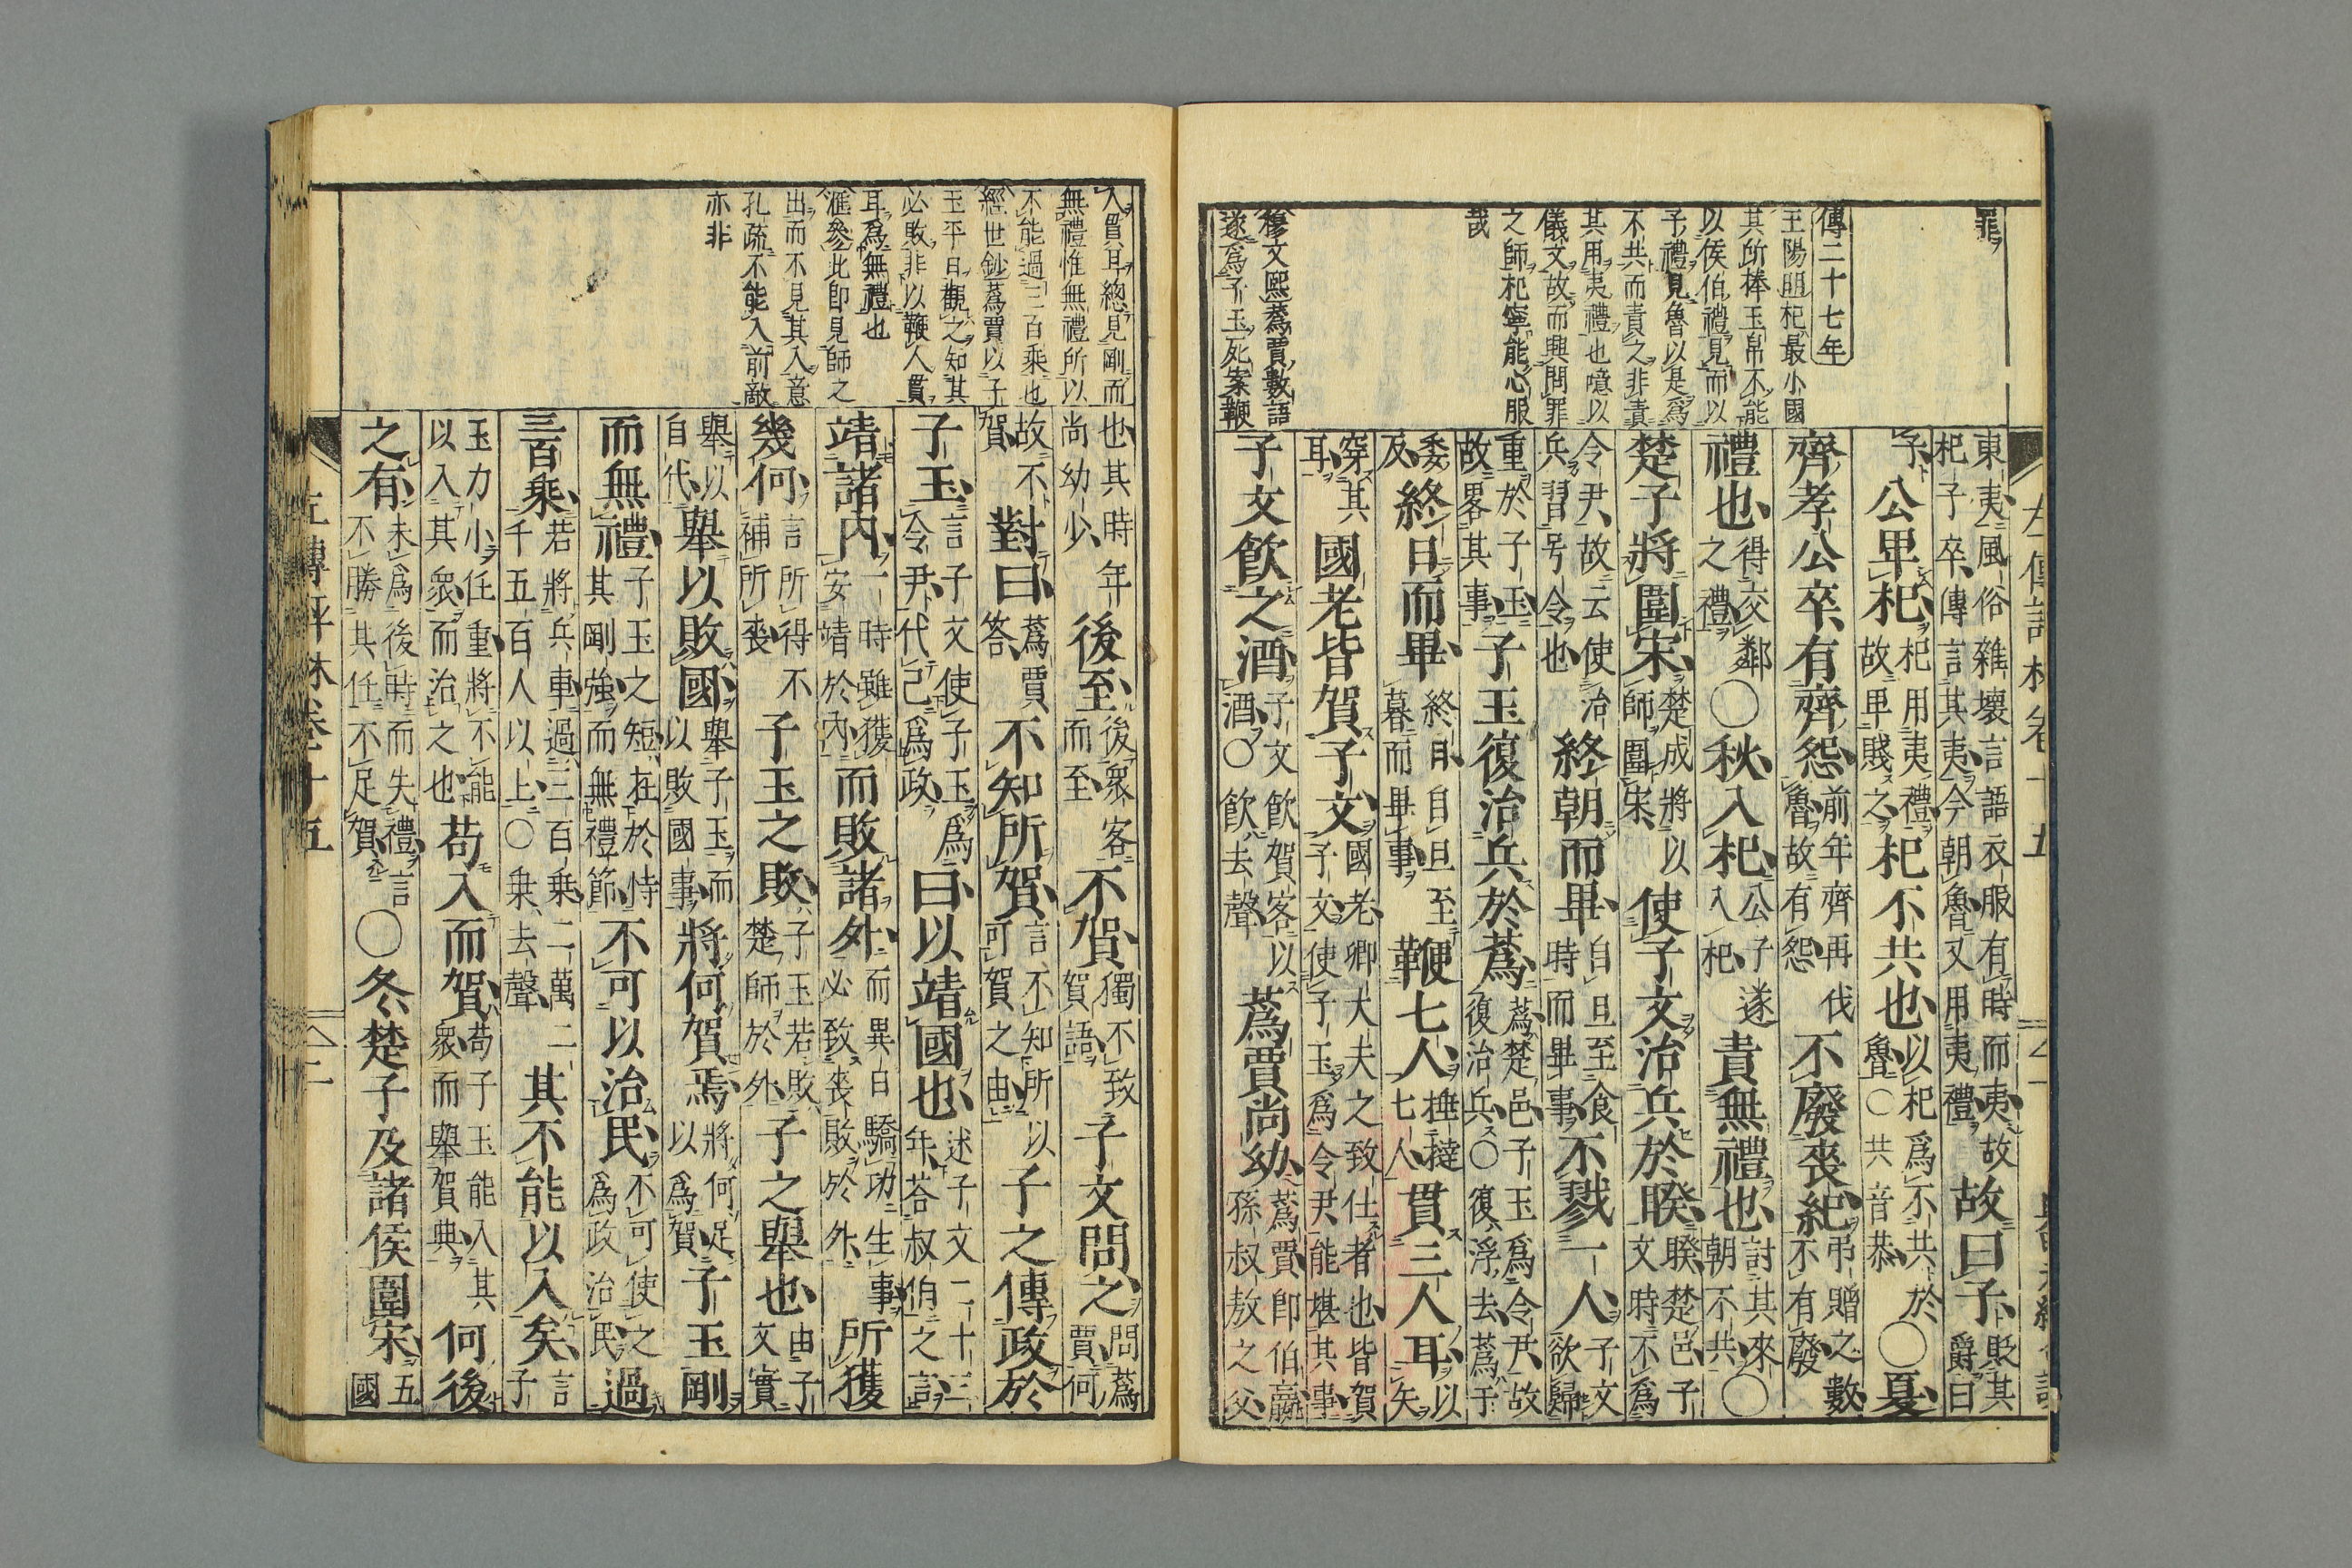 罪
傳二十七年
王陽明杞最小國
其所棒玉帛不能
以侯伯禮見而以
子禮見魯以是爲
不共而責之非責
其用夷禮也噫以
儀文故而興問罪
之師杞寧能心服
哉
穆文熙蒍賈數語
遂爲子玉死案鞭
東夷風俗雜壞言語衣服有時而夷故杞子卒傳言其夷今朝魯又用夷禮故曰子貶其爵曰
子公卑杞杞用夷禮故卑賤之杞不共也以杞爲不共於魯○共音恭○夏
齊孝公卒有齊怨前年齊再伐魯故有怨不廢喪紀弔贈之數不有廢
禮也得交鄰之禮○秋入杞公子遂入杞責無禮也討其來朝不共○
楚子將圍宋楚成將以師圍宋使子文治兵於睽睽楚邑子文時不爲
令尹故云使治兵習号令也終朝而畢自旦至食時而畢事不戮一人子文欲歸
重於子玉故畧其事子玉復治兵於蒍蒍楚邑子玉爲令尹故復治兵○復浮去蒍于
委及終日而畢終日自旦至暮而畢事鞭七人捶撻七人貫三人耳以矢
穿其耳國老皆賀子文國老卿大夫之致仕者也皆賀子文使子玉爲令尹能堪其事
子文飲之酒子文飲賀客以酒○飲去聲蒍賈尚幼蒍賈即伯嬴孫叔敖之父
人貫耳總見剛而
無禮惟無禮所以
不能過三百乘也
經世鈔蒍賈以子
玉平日觀之知其
必敗非以鞭人貫
耳爲無禮也
滙參此即見師之
出而不見其入意
孔疏不能入前敵
亦非
也其時年尚幼少後至後衆客而至不賀獨不致賀語子文問之問蒍賈何
故不賀對曰蒍賈答不知所賀言不知所以可賀之由子之傳政於
子玉言子文使子玉爲令尹代己爲政曰以靖國也述子文二十三年荅叔伯之言
靖諸內一時雖獲安靖於內而敗諸外而異日驕功生事必致喪敗於外所獲
幾何言所得不補所喪子玉之敗子玉若敗楚師於外子之舉也由子文實
舉以自代舉以敗國舉子玉而以敗國事將何賀焉將何足以爲賀子玉剛
而無禮子玉之短在於恃其剛強而無禮節不可以治民不可使之爲政治民過
三百乘若將兵車過三百乘二萬二千五百人以上○乘去聲其不能以入矣言子
玉力小任重將不能以入其衆而治之也苟入而賀苟子玉能入其衆而舉賀典何後
之有未爲後時而失禮言不勝其任不足賀○冬楚子及諸侯圍宋五國
左傳評林卷十五